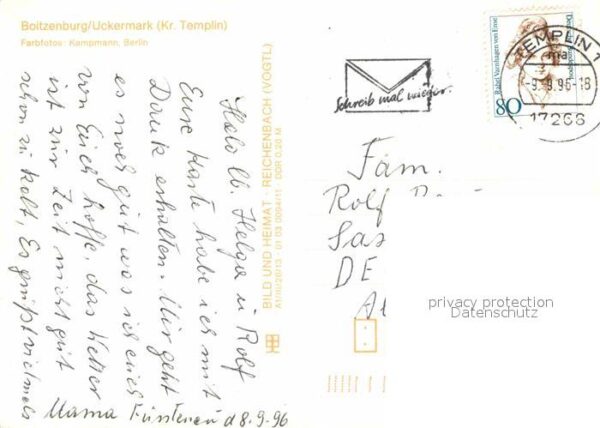 Boitzenburg/Uckermark (Kr. Templin)
Farbfotos: Kampmann, Berlin
Halo lb. Helga u Rolf
Eure Karte habe ich mit
Dank erhalten. Mir geht
es noch gut was ich auch
von Euch hoffe. das Wetter
ist zur Zeit nicht gut
schon zu kalt, Es grüßt vielmals
Mama Fürstenau d 8.9.96
BILD UND HEIMAT · REICHENBACH (VOGTL)
A1/III/26/13 01 03 0094/11 DDR 0,20 M
Schreib mal wieder.
Rahel Varnhagen von Ense
Deutsche Bundespost
80
TEMPLIN 1
ma
-9.-9.96-18
17268
Fam.
Rolf
Sas
DE
privacy protection
Datenschutz